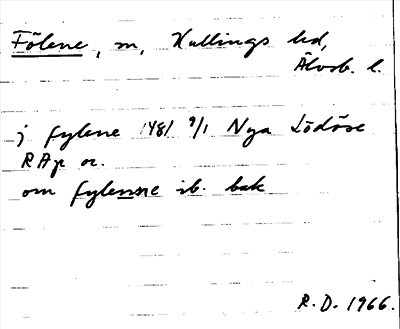 Fölene, m, Kullings hd,
Älvsb. l.
j fylene 1481 9/1 Nya Lödöse
RAp or.
om fylenne ib. bak
R.D. 1966.